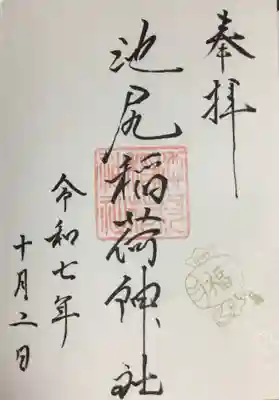 奉拝
池尻稲荷神社
令和七年
十月二日